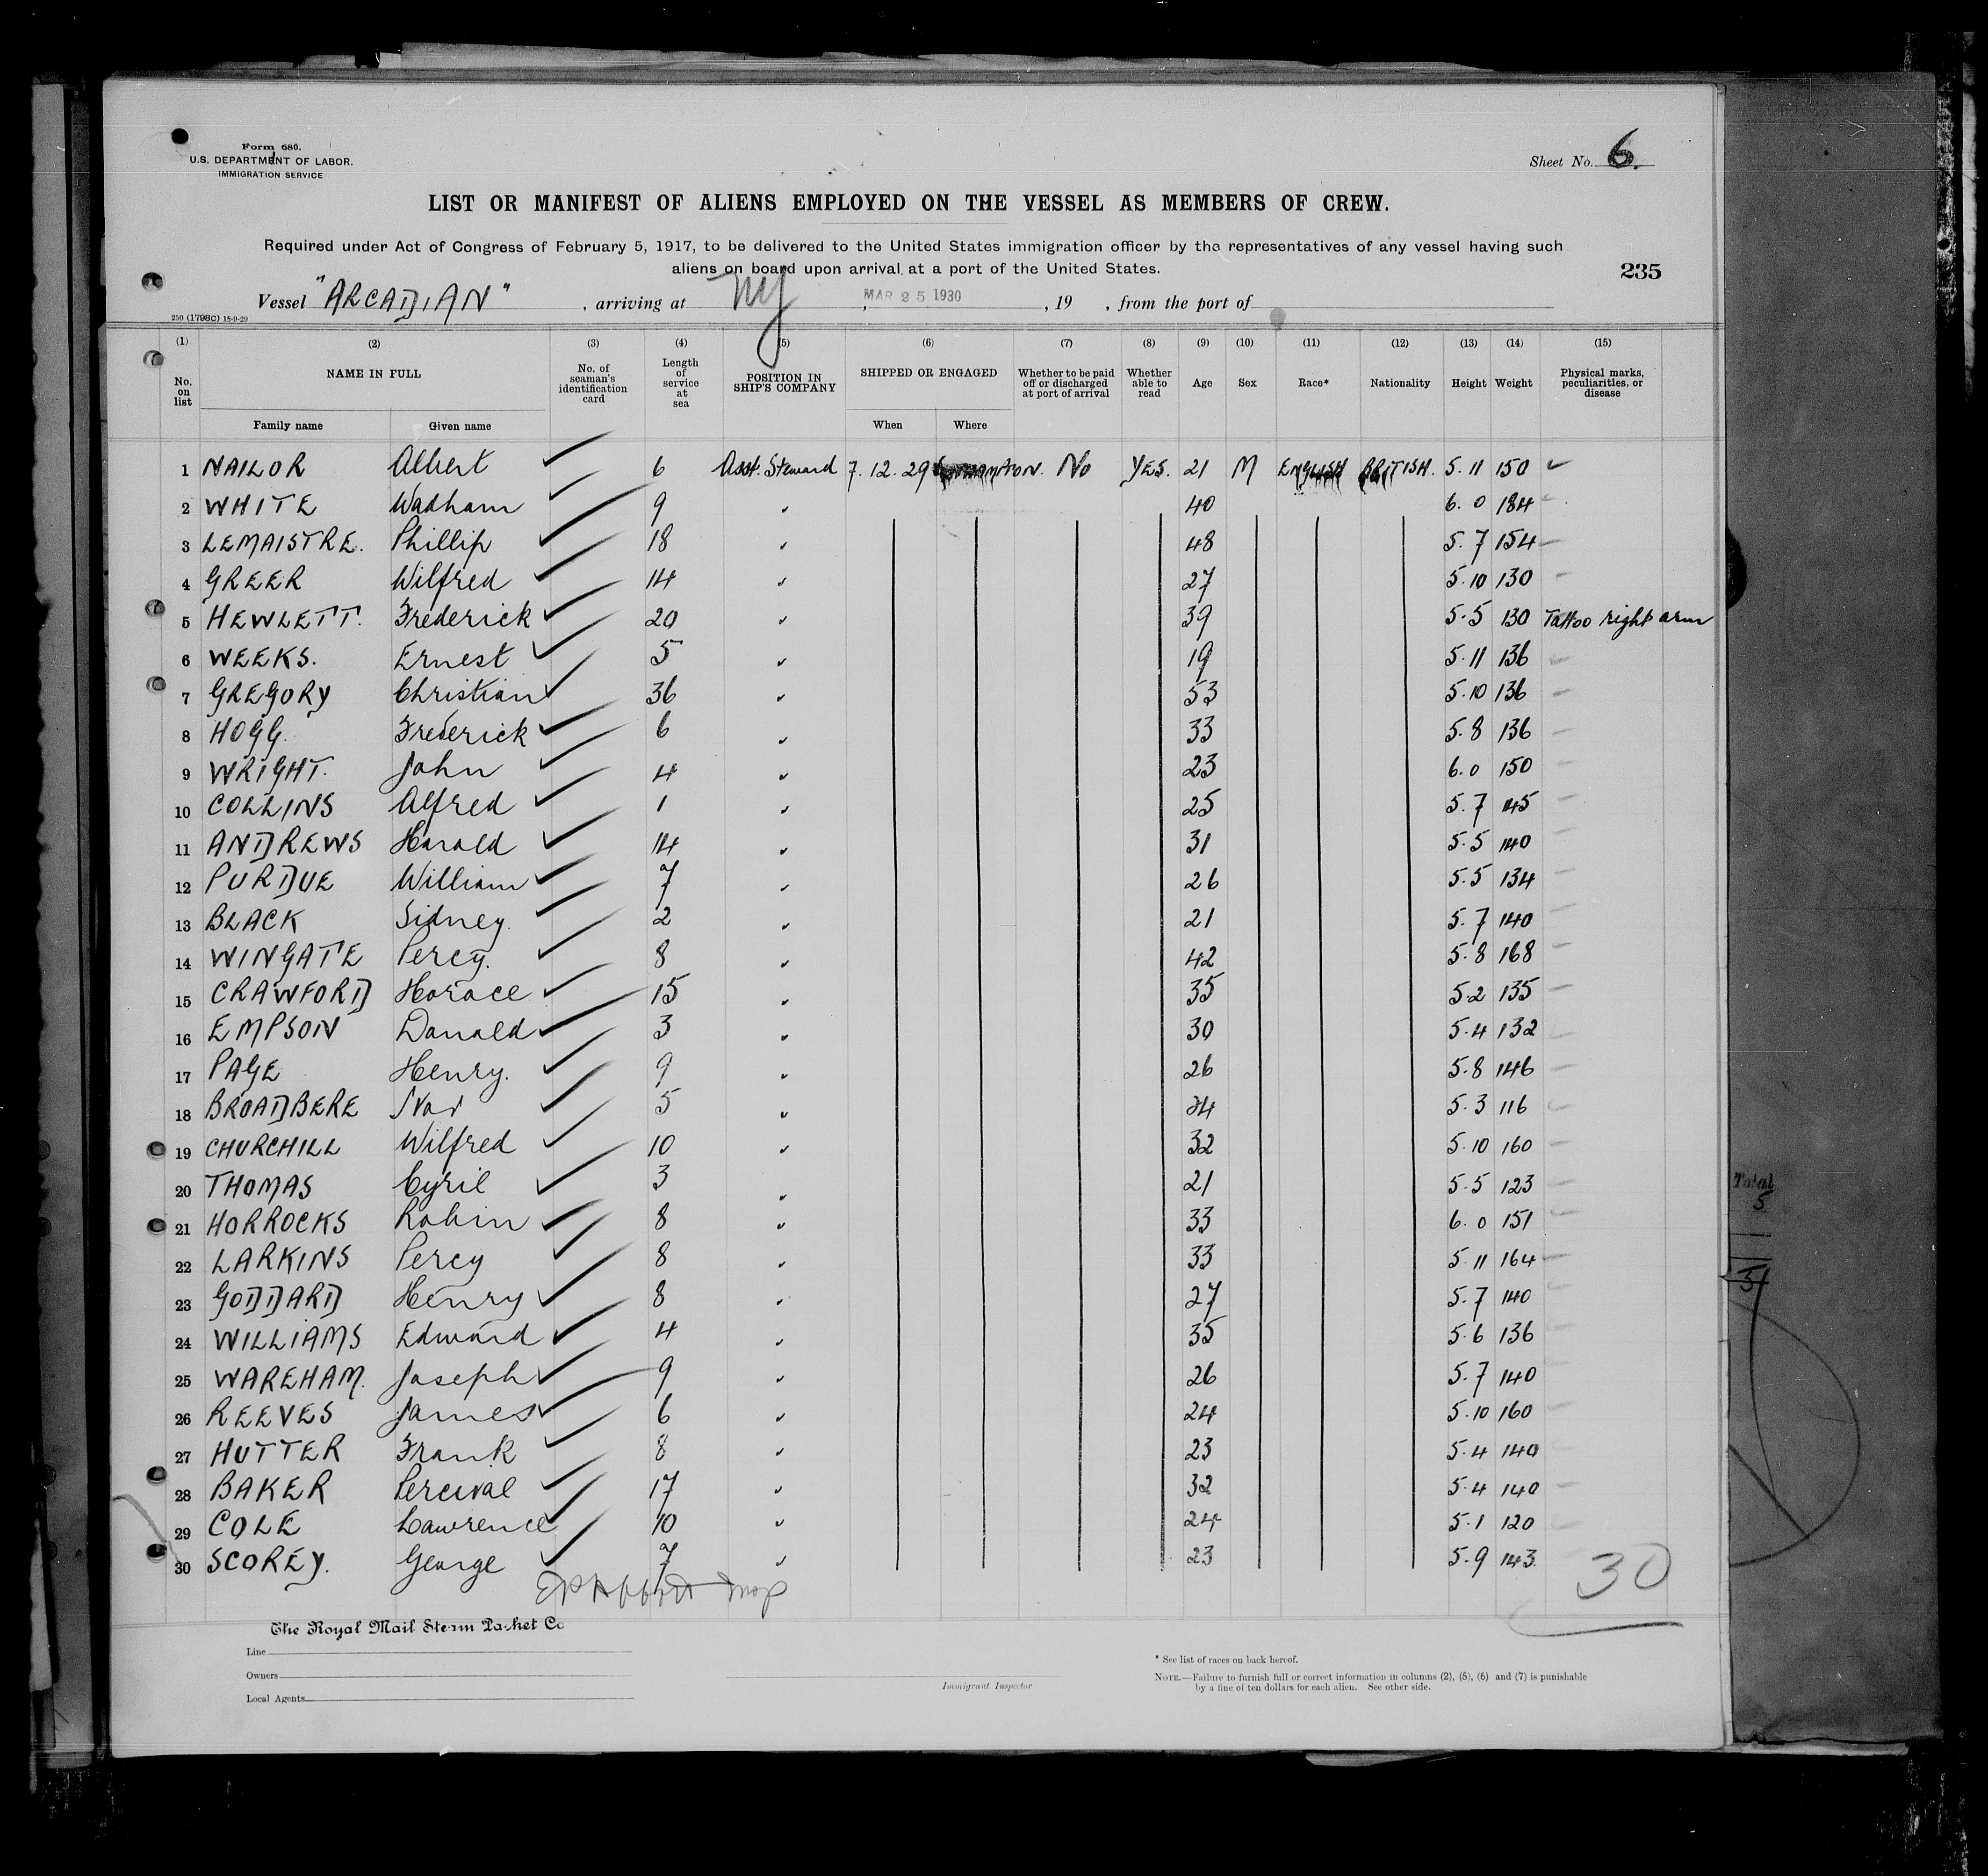 Form 680.
U.S. DEPARTMENT OF LABOR.
IMMIGRATION SERVICE
Sheet No. 6.
LIST OR MANIFEST OF ALIENS EMPLOYED ON THE VESSEL AS MEMBERS OF CREW.
Required under Act of Congress of February 5, 1917, to be delivered to the United States immigration officer by the representatives of any vessel having such
aliens on board upon arrival at a port of the United States.
235
Vessel "ARCADIAN" , arriving at NY , MAR 25 1930 , 19 , from the port of
250 (1798C) 18-9-29
(1) (2) (3) (4) (5) (6) (7) (8) (9) (10) (11) (12) (13) (14) (15)
No. on list NAME IN FULL No. of seaman's identification card Length of service at sea POSITION IN SHIP'S COMPANY SHIPPED OR ENGAGED Whether to be paid off or discharged at port of arrival Whether able to read Age Sex Race* Nationality Height Weight Physical marks, peculiarities, or disease
Family name Given name When Where
1 NAILOR Albert ✓ 6 Asst. Steward 7.12.29 No YES. 21 M ENGLISH BRITISH. 5.11 150 ✓
2 WHITE Wadham ✓ 9 ✓ 40 6.0 184 –
3 LEMAISTRE. Phillip ✓ 18 ✓ 48 5.7 154 –
4 GREER Wilfred ✓ 14 ✓ 27 5.10 130 –
5 HEWLETT. Frederick ✓ 20 ✓ 39 5.5 130 Tattoo right arm
6 WEEKS. Ernest ✓ 5 ✓ 19 5.11 136 –
7 GREGORY Christian ✓ 36 ✓ 53 5.10 136 –
8 HOGG. Frederick ✓ 6 ✓ 33 5.8 136 –
9 WRIGHT. John ✓ 4 ✓ 23 6.0 150 –
10 COLLINS Alfred ✓ 1 ✓ 25 5.7 145 –
11 ANDREWS Harold ✓ 14 ✓ 31 5.5 140 –
12 PURDUE William ✓ 7 ✓ 26 5.5 134 –
13 BLACK Sidney. ✓ 2 ✓ 21 5.7 140 –
14 WINGATE Percy. ✓ 8 ✓ 42 5.8 168 –
15 CRAWFORD Horace ✓ 15 ✓ 35 5.2 135 –
16 EMPSON Donald ✓ 3 ✓ 30 5.4 132 –
17 PAGE Henry. ✓ 9 ✓ 26 5.8 146 –
18 BROADBERE Ivor ✓ 5 ✓ 24 5.3 116 –
19 CHURCHILL Wilfred ✓ 10 ✓ 32 5.10 160 –
20 THOMAS Cyril ✓ 3 ✓ 21 5.5 123 –
21 HORROCKS Robin ✓ 8 ✓ 33 6.0 151 –
22 LARKINS Percy ✓ 8 ✓ 33 5.11 164 –
23 GODDARD Henry ✓ 8 ✓ 27 5.7 140 –
24 WILLIAMS Edward ✓ 4 ✓ 35 5.6 136 –
25 WAREHAM. Joseph ✓ 9 ✓ 26 5.7 140 –
26 REEVES James ✓ 6 ✓ 24 5.10 160 –
27 HUTTER Frank ✓ 8 ✓ 23 5.4 140 –
28 BAKER Percival ✓ 17 ✓ 32 5.4 140 –
29 COLE Lawrence ✓ 10 ✓ 24 5.1 120 –
30 SCOREY. George ✓ 7 ✓ 23 5.9 143.
30
The Royal Mail Steam Packet Co
Line
Owners
Local Agents
Immigrant Inspector
* See list of races on back hereof.
NOTE.—Failure to furnish full or correct information in columns (2), (5), (6) and (7) is punishable
by a fine of ten dollars for each alien. See other side.
Total
5